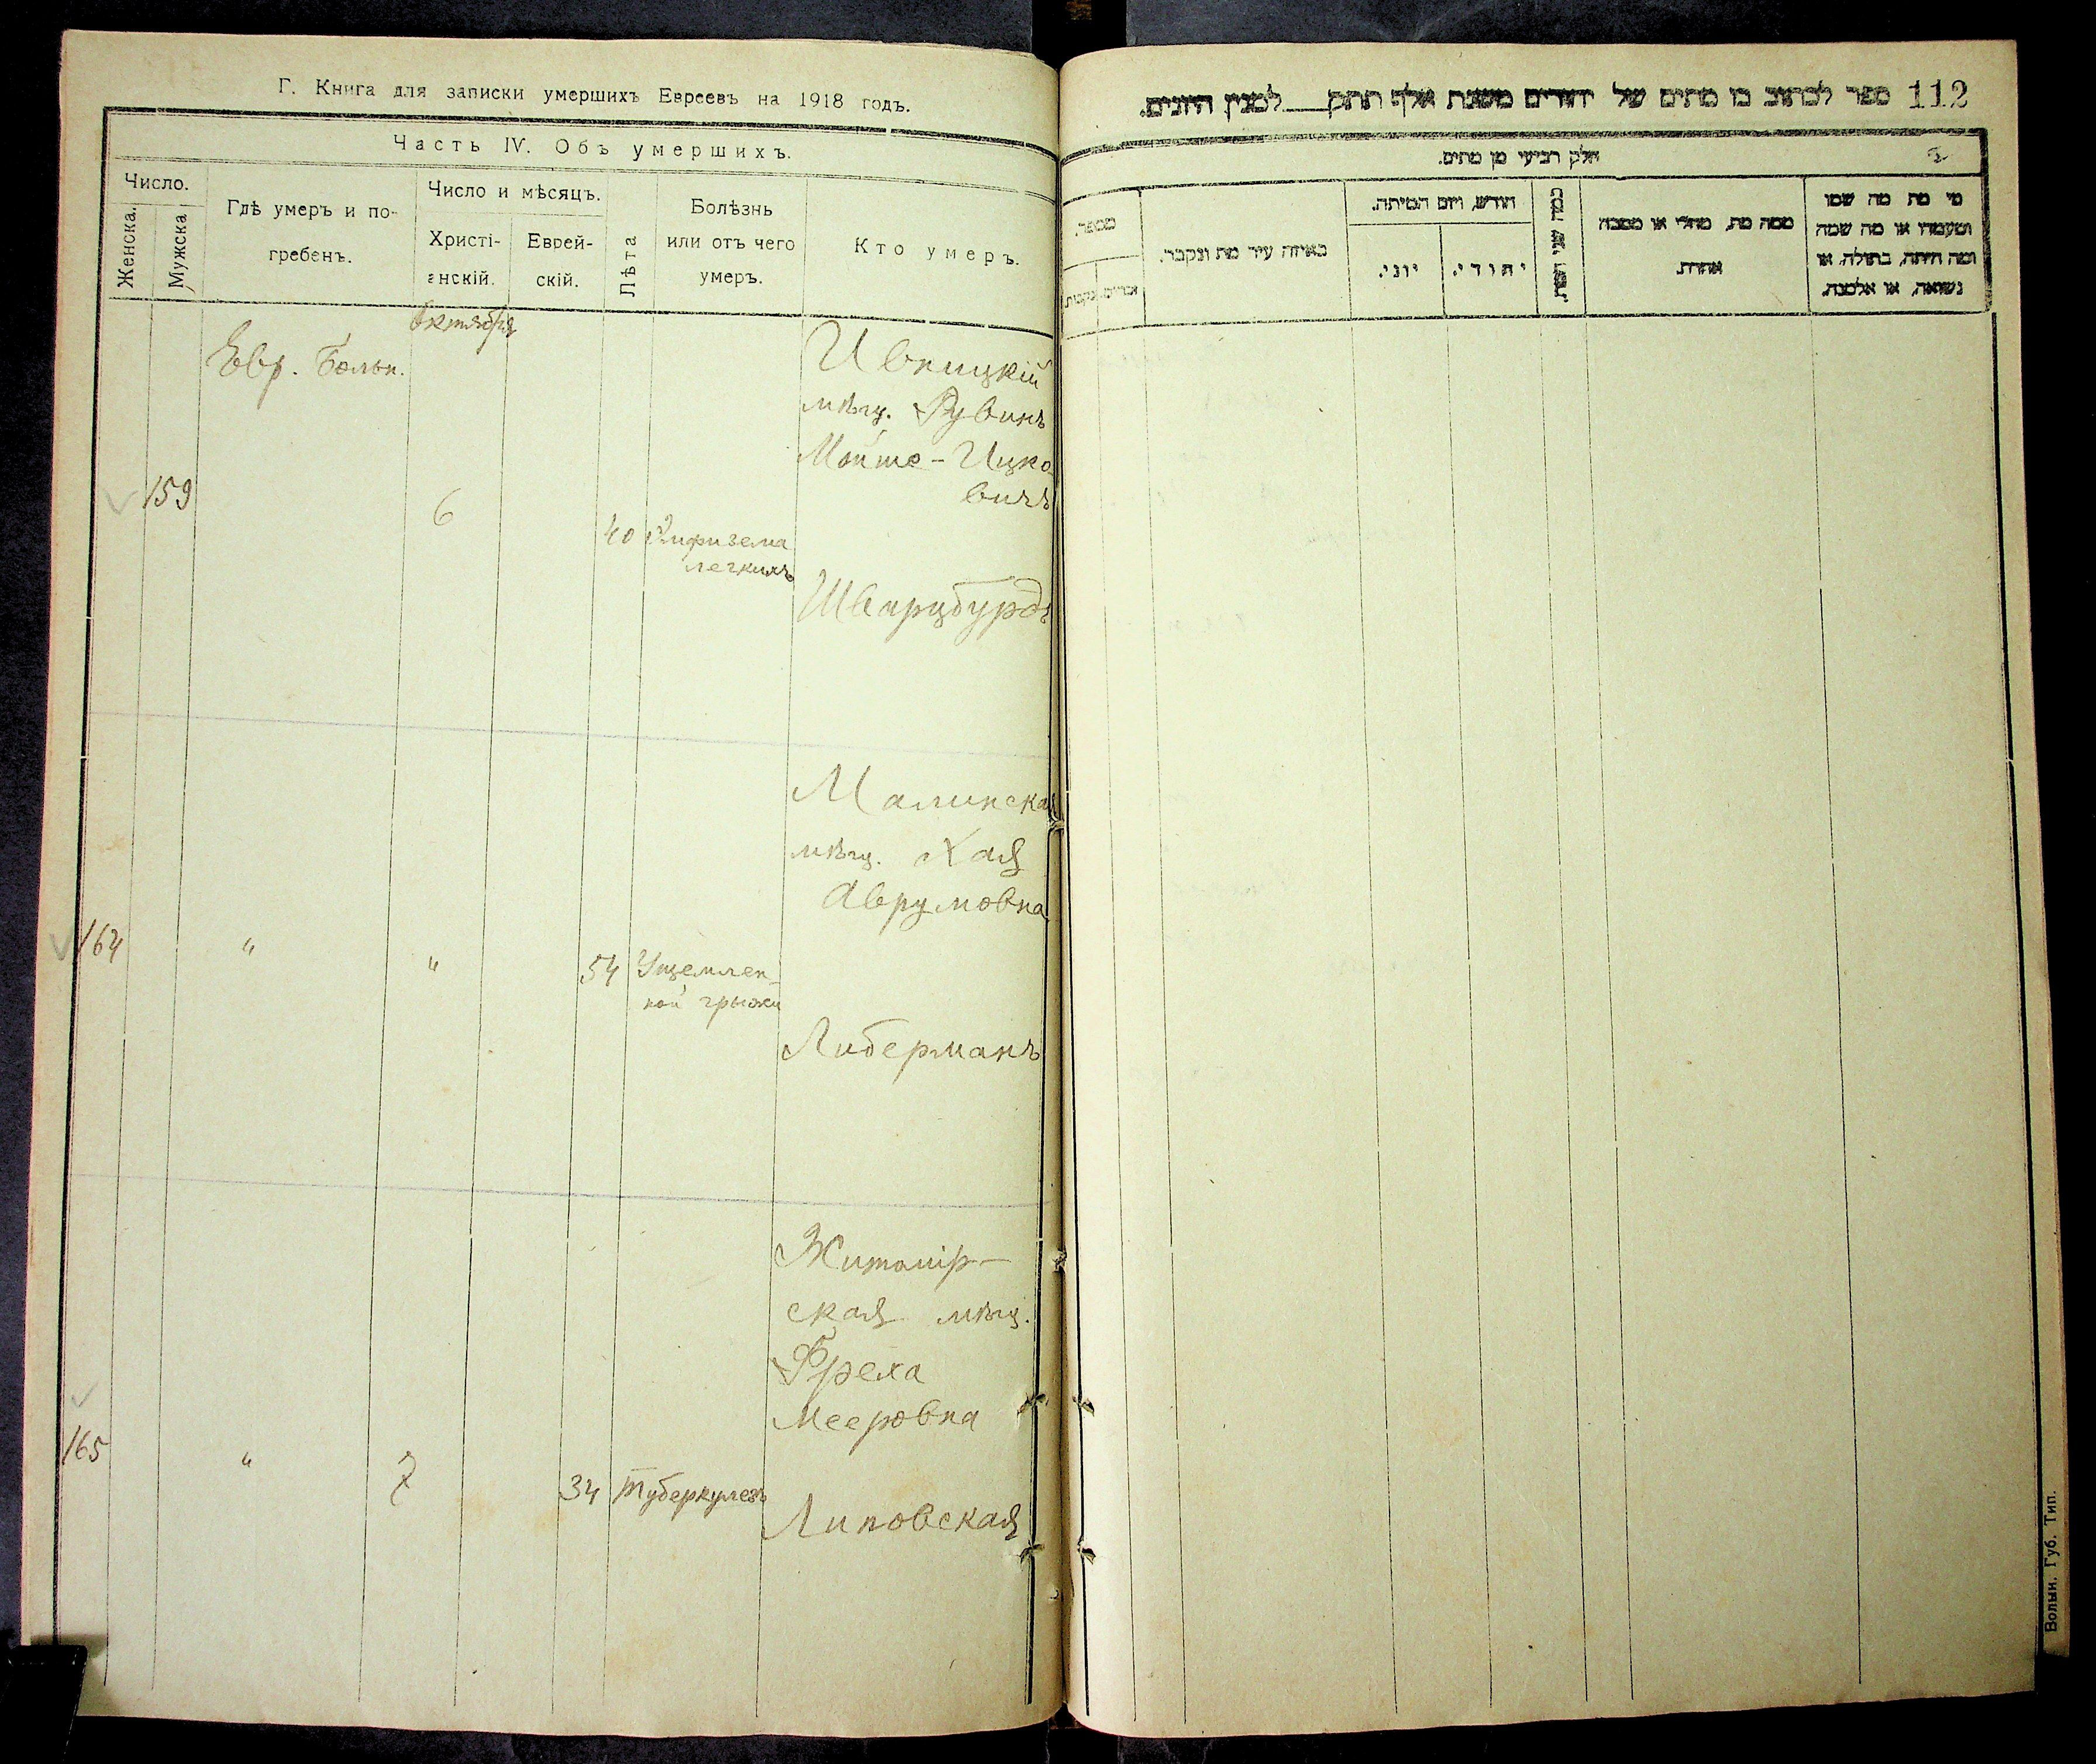 Г. Книга для записки умершихъ Евреевъ на 1918 годъ.
Часть IV. Объ умершихъ.
Число.
Женска.
Мужска
Гдѣ умеръ и по-
гребенъ.
Число и мѣсяцъ.
Христі-
анскій.
Еврей-
скій.
Лѣта
Болѣзнь
или отъ чего
умеръ.
Кто умеръ.
Октября
Евр. Больн.
Ивницкій
мѣщ. Рувинъ
Мойше-Ицко-
вичъ
159
6
40
Эмфизема
легкихъ
Шварцбурдъ
Малинская
мѣщ. Хая
Аврумовна
164
"
"
54
Ущемлен-
ной грыжи
Либерманъ
Житомір-
ская мѣщ.
Фрейа
Мееровна
165
"
7
34
Туберкулезъ
Липовская
ספר לכתוב בו מתים של יהודים משנת אלף תתק למנין היונים.
112
חלק רביעי מן מתים.
מספר.
נקבות
זכרים
באיזה עיר מת ונקבר.
חודש, ויום המיתה.
יוני.
יהודי.
כמה שני המת.
ממה מת, מחלי או מסבה
אחרת.
מי מת מה שמו
ומעמדו או מה שמה
ומה היתה, בתולה, או
נשואה, או אלמנה.
Волын. Губ. Тип.